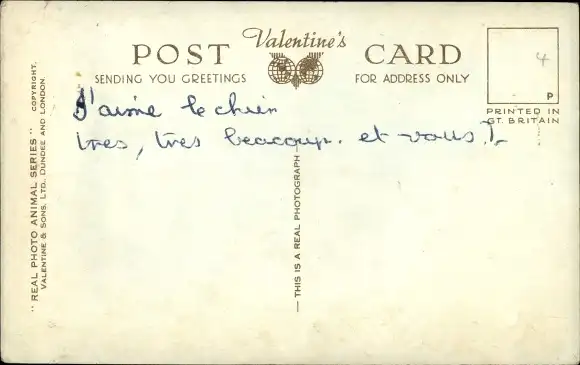 Valentine's
POST CARD
SENDING YOU GREETINGS
FOR ADDRESS ONLY
4
P
PRINTED IN
GT. BRITAIN
J'aime le chien
tres, tres beacoup. et vous?
" REAL PHOTO ANIMAL SERIES " COPYRIGHT.
VALENTINE & SONS, LTD., DUNDEE AND LONDON.
— THIS IS A REAL PHOTOGRAPH —